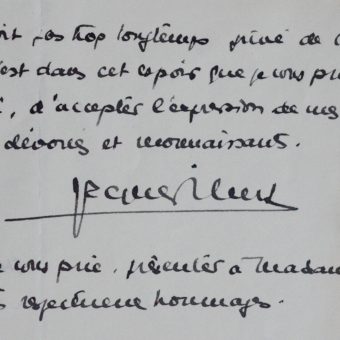 pas trop longtemps privé de
est dans cet espoir que je vous pri
, d'accepter l'expression de mes
dévoués et reconnaissants.
Jacques
vous prie, présenter à Madam
respectueux hommages.